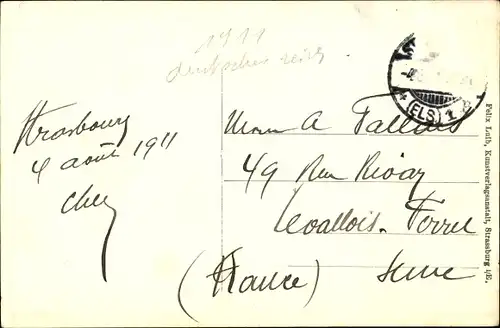 1911
deutsches reich
Strasbourg
4 août 1911
Mme A
49 Rue Rivay
Levallois-Perret
(France) Seine
(ELS) 1 B
Felix Luib, Kunstverlagsanstalt, Strassburg i/E.